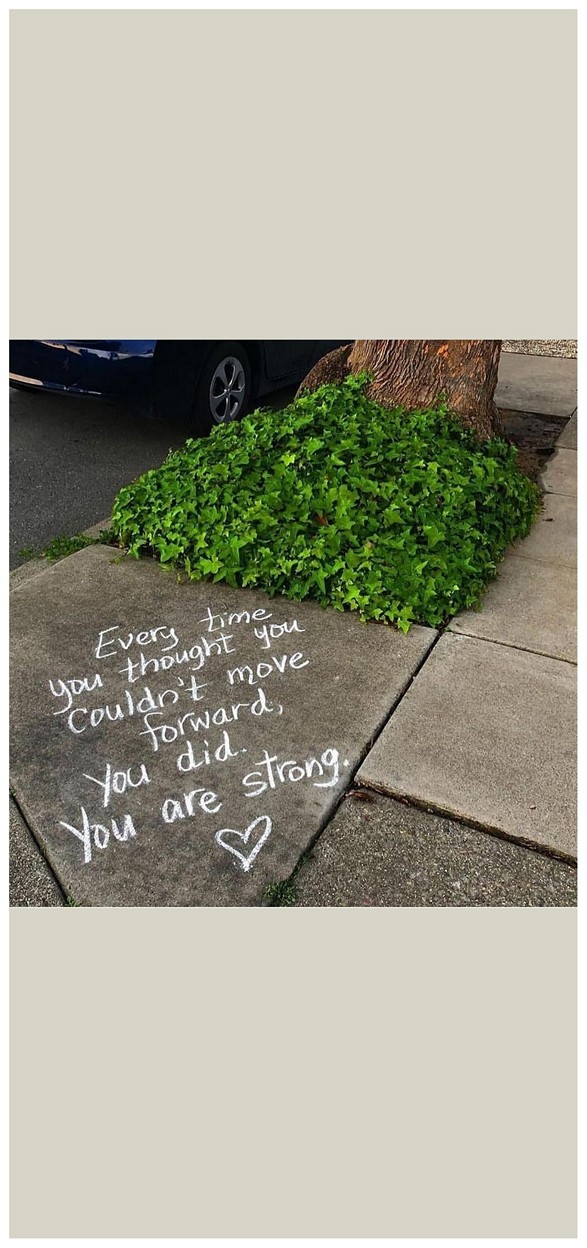 Every time
you thought you
couldn't move
forward,
You did.
You are strong.